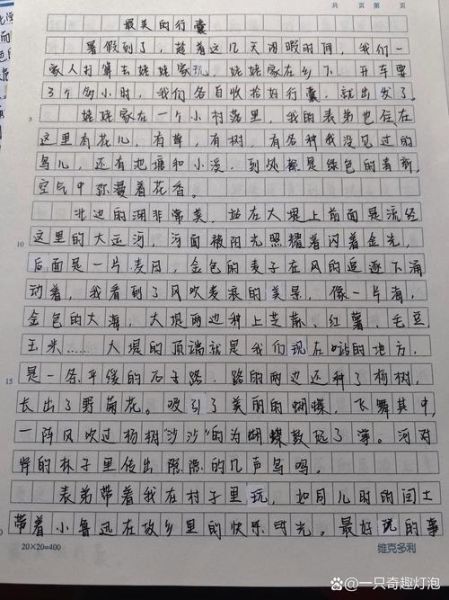 共 页 第 页
最美的行囊
暑假到了，趁着这几天闲暇时间，我们一
家人打算去姥姥家玩，姥姥家在乡下，开车要
3个多小时，我们各自收拾好行囊，就出发了。
姥姥家在一个小村落里，我的表弟也住在
这里有花儿，有草，有树，有各种我没见过的
鸟儿，还有池塘和小溪，到处都是绿色的清新，
空气中弥漫着花香。
北边的湖非常美，站在大堤上前面是流经
这里的大运河，河面被阳光照耀着闪着金光，
后面是一片麦田，金色的麦子在风的追逐下涌
动着，我看到了风吹麦浪的美景，像一片海，
金色的大海，大堤两边种上芝麻、红薯、毛豆
玉米……大堤的顶端就是我们现在站的地方，
是一条平缓的石子路，路的两边还种了杨树，
长出了野菊花。吸引了美丽的蝴蝶，飞舞其中，
一阵风吹过杨树"沙沙"的为蝴蝶散起了。河对
岸的林子里传出隐隐的几声鸟鸣。
表弟带着我在村子里玩，如同儿时的闰土
带着小鲁迅在故乡里的快乐时光，最好玩的事
5
10
15
20×20=400
维克多利
@一只奇趣灯泡